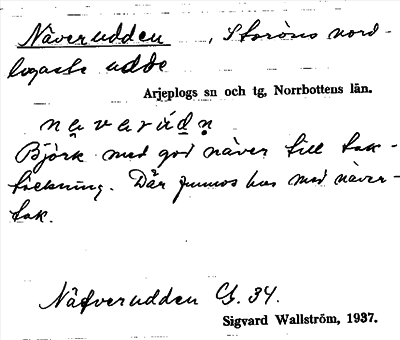 Näverudden, Storöns nord-
ligaste udde
Arjeplogs sn och tg, Norrbottens län.
Björk med god näver till tak-
täckning. Där finnes hus med näver-
tak.
Näfverudden Gs. 34.
Sigvard Wallström, 1937.